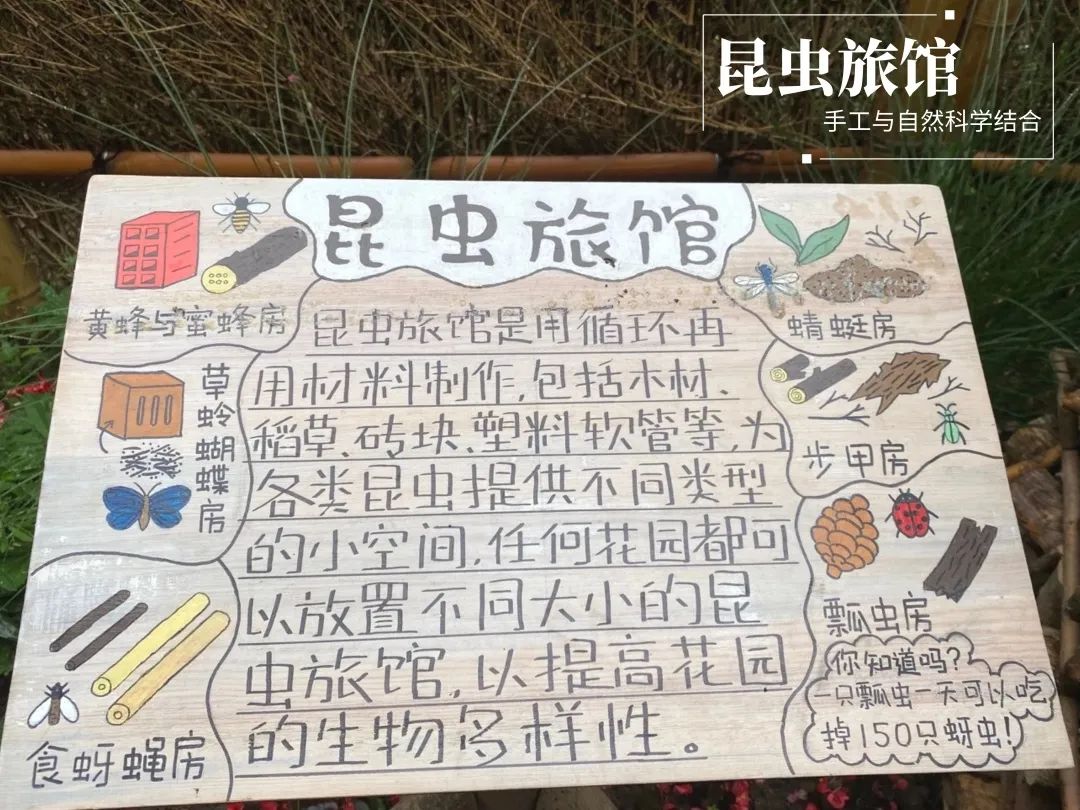 昆虫旅馆
手工与自然科学结合
昆虫旅馆
黄蜂与蜜蜂房
昆虫旅馆是用循环再
用材料制作,包括木材、
稻草、砖块、塑料软管等,为
各类昆虫提供不同类型
的小空间,任何花园都可
以放置不同大小的昆
虫旅馆,以提高花园
的生物多样性。
草蛉蝴蝶房
食蚜蝇房
蜻蜓房
步甲房
瓢虫房
你知道吗?
一只瓢虫一天可以吃
掉150只蚜虫!